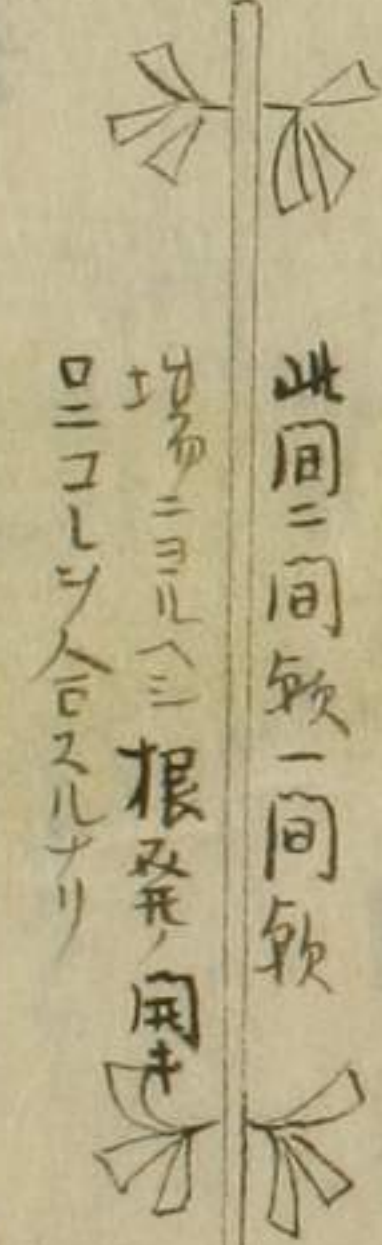 此間二間欤一間欤
場ニヨルヘシ根発ノ開キ
口ニコレヲ合スルナリ